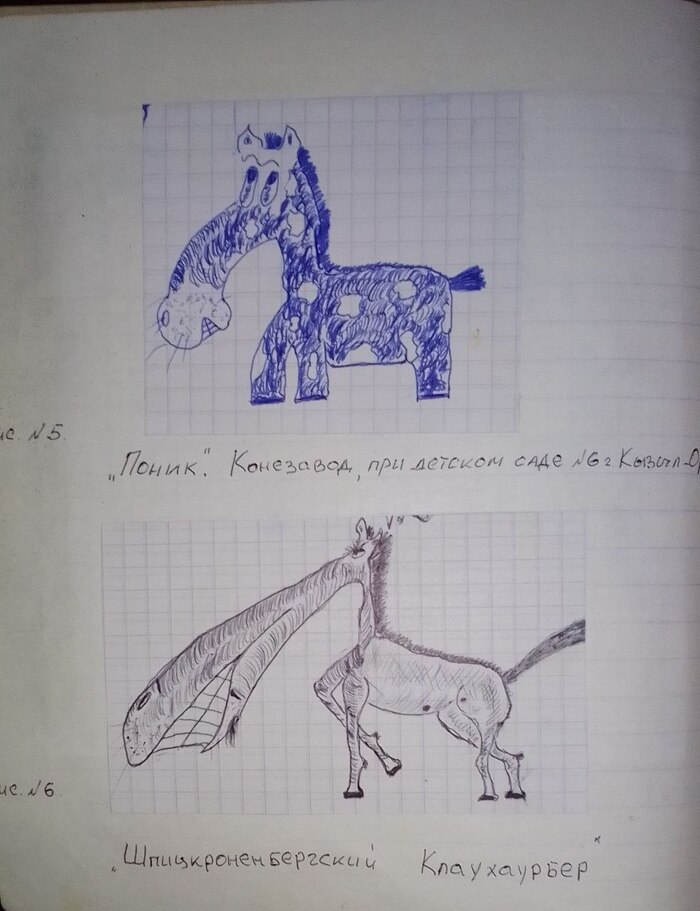 ис. №5.
„Поник". Конезавод, при детском саде №6 г Кызыл-Ор
ис. №6.
„Шпицкроненбергский Клаухаурбер"